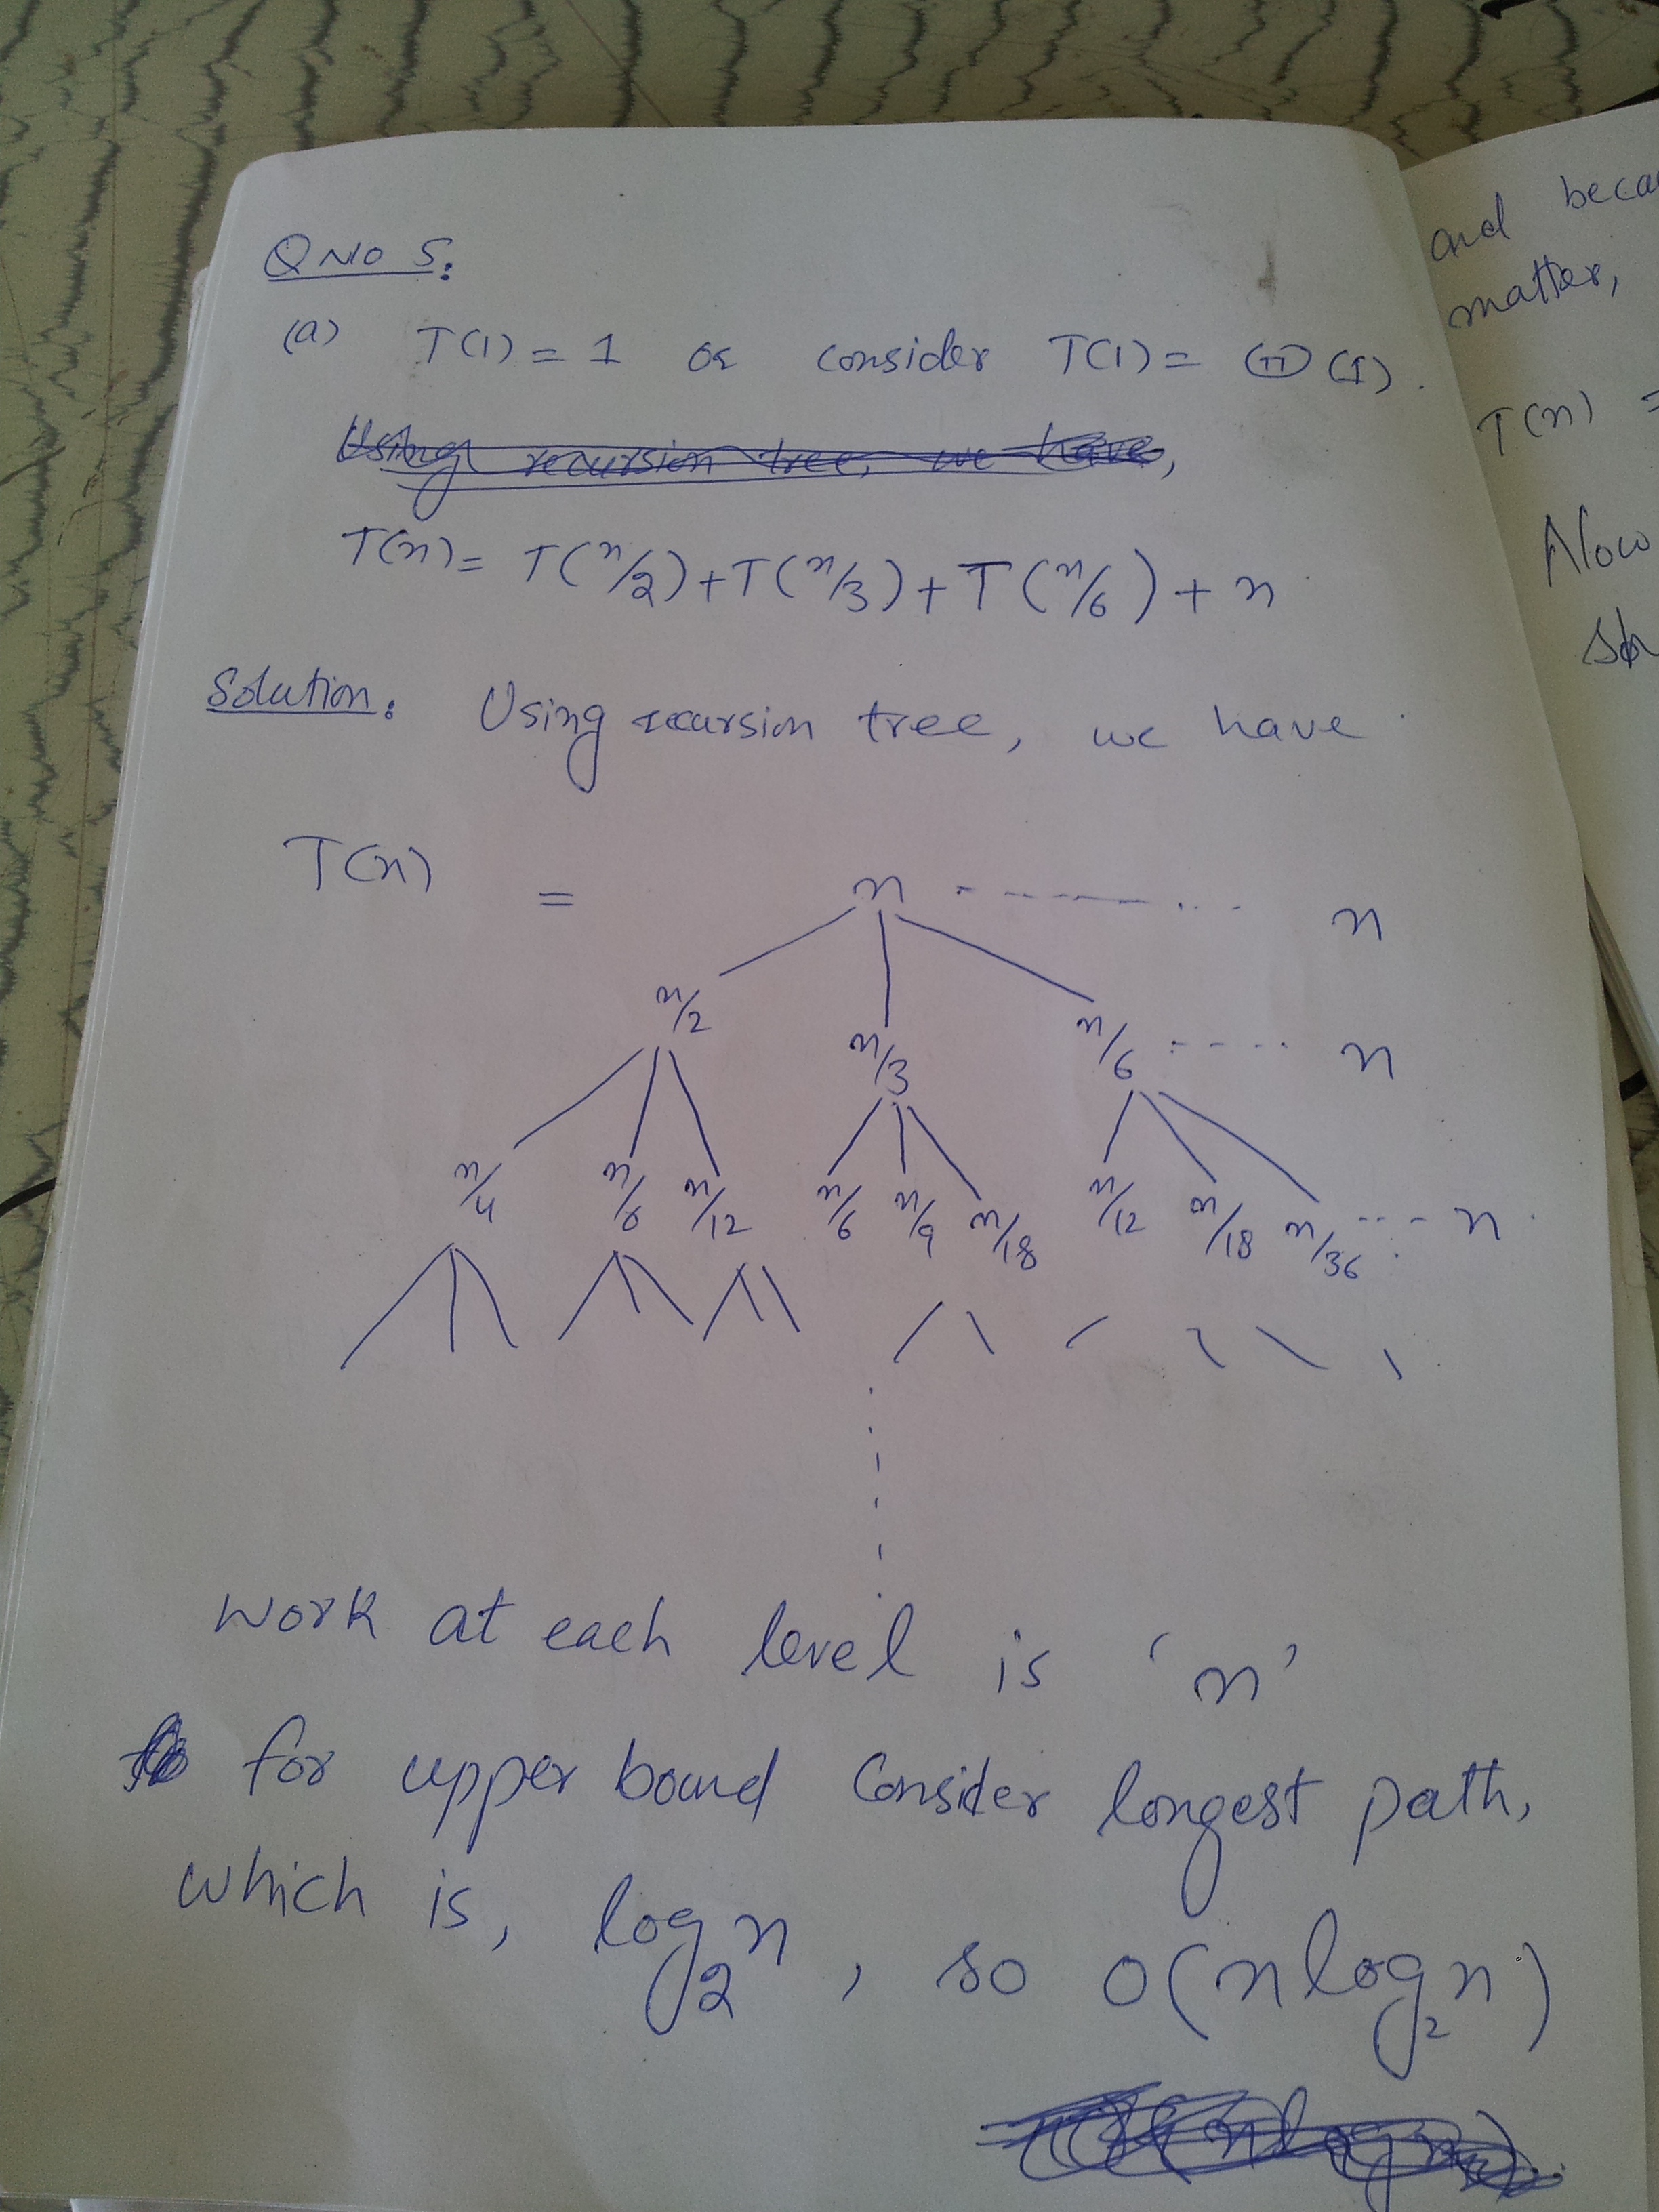 Q No 5:
(a) T(1) = 1 or consider T(1) = Θ(1).
Using recursion tree, we have,
T(n) = T(n/2) + T(n/3) + T(n/6) + n
Solution: Using recursion tree, we have
T(n) = n n
n/2 n/3 n/6 n
n/4 n/6 n/12 n/6 n/9 n/18 n/12 n/18 n/36 n
Work at each level is 'n'
for upper bound Consider longest path,
which is, log₂n, so O(n log₂n)
and beca
matter,
T(n) =
Now